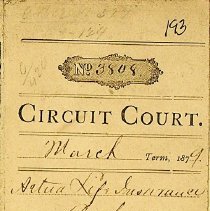 193
No. 3808.
CIRCUIT COURT.
March Term, 1879.
Aetna Life Insurance